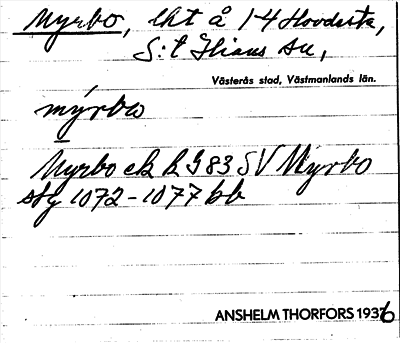 Myrbo, lht å 14 Hovdesta,
S:t Ilians sn,
Västerås stad, Västmanlands län.
mýrbω
Myrbo ek k G 83 SV Myrbo
stg 1072-1077 bb
ANSHELM THORFORS 1936